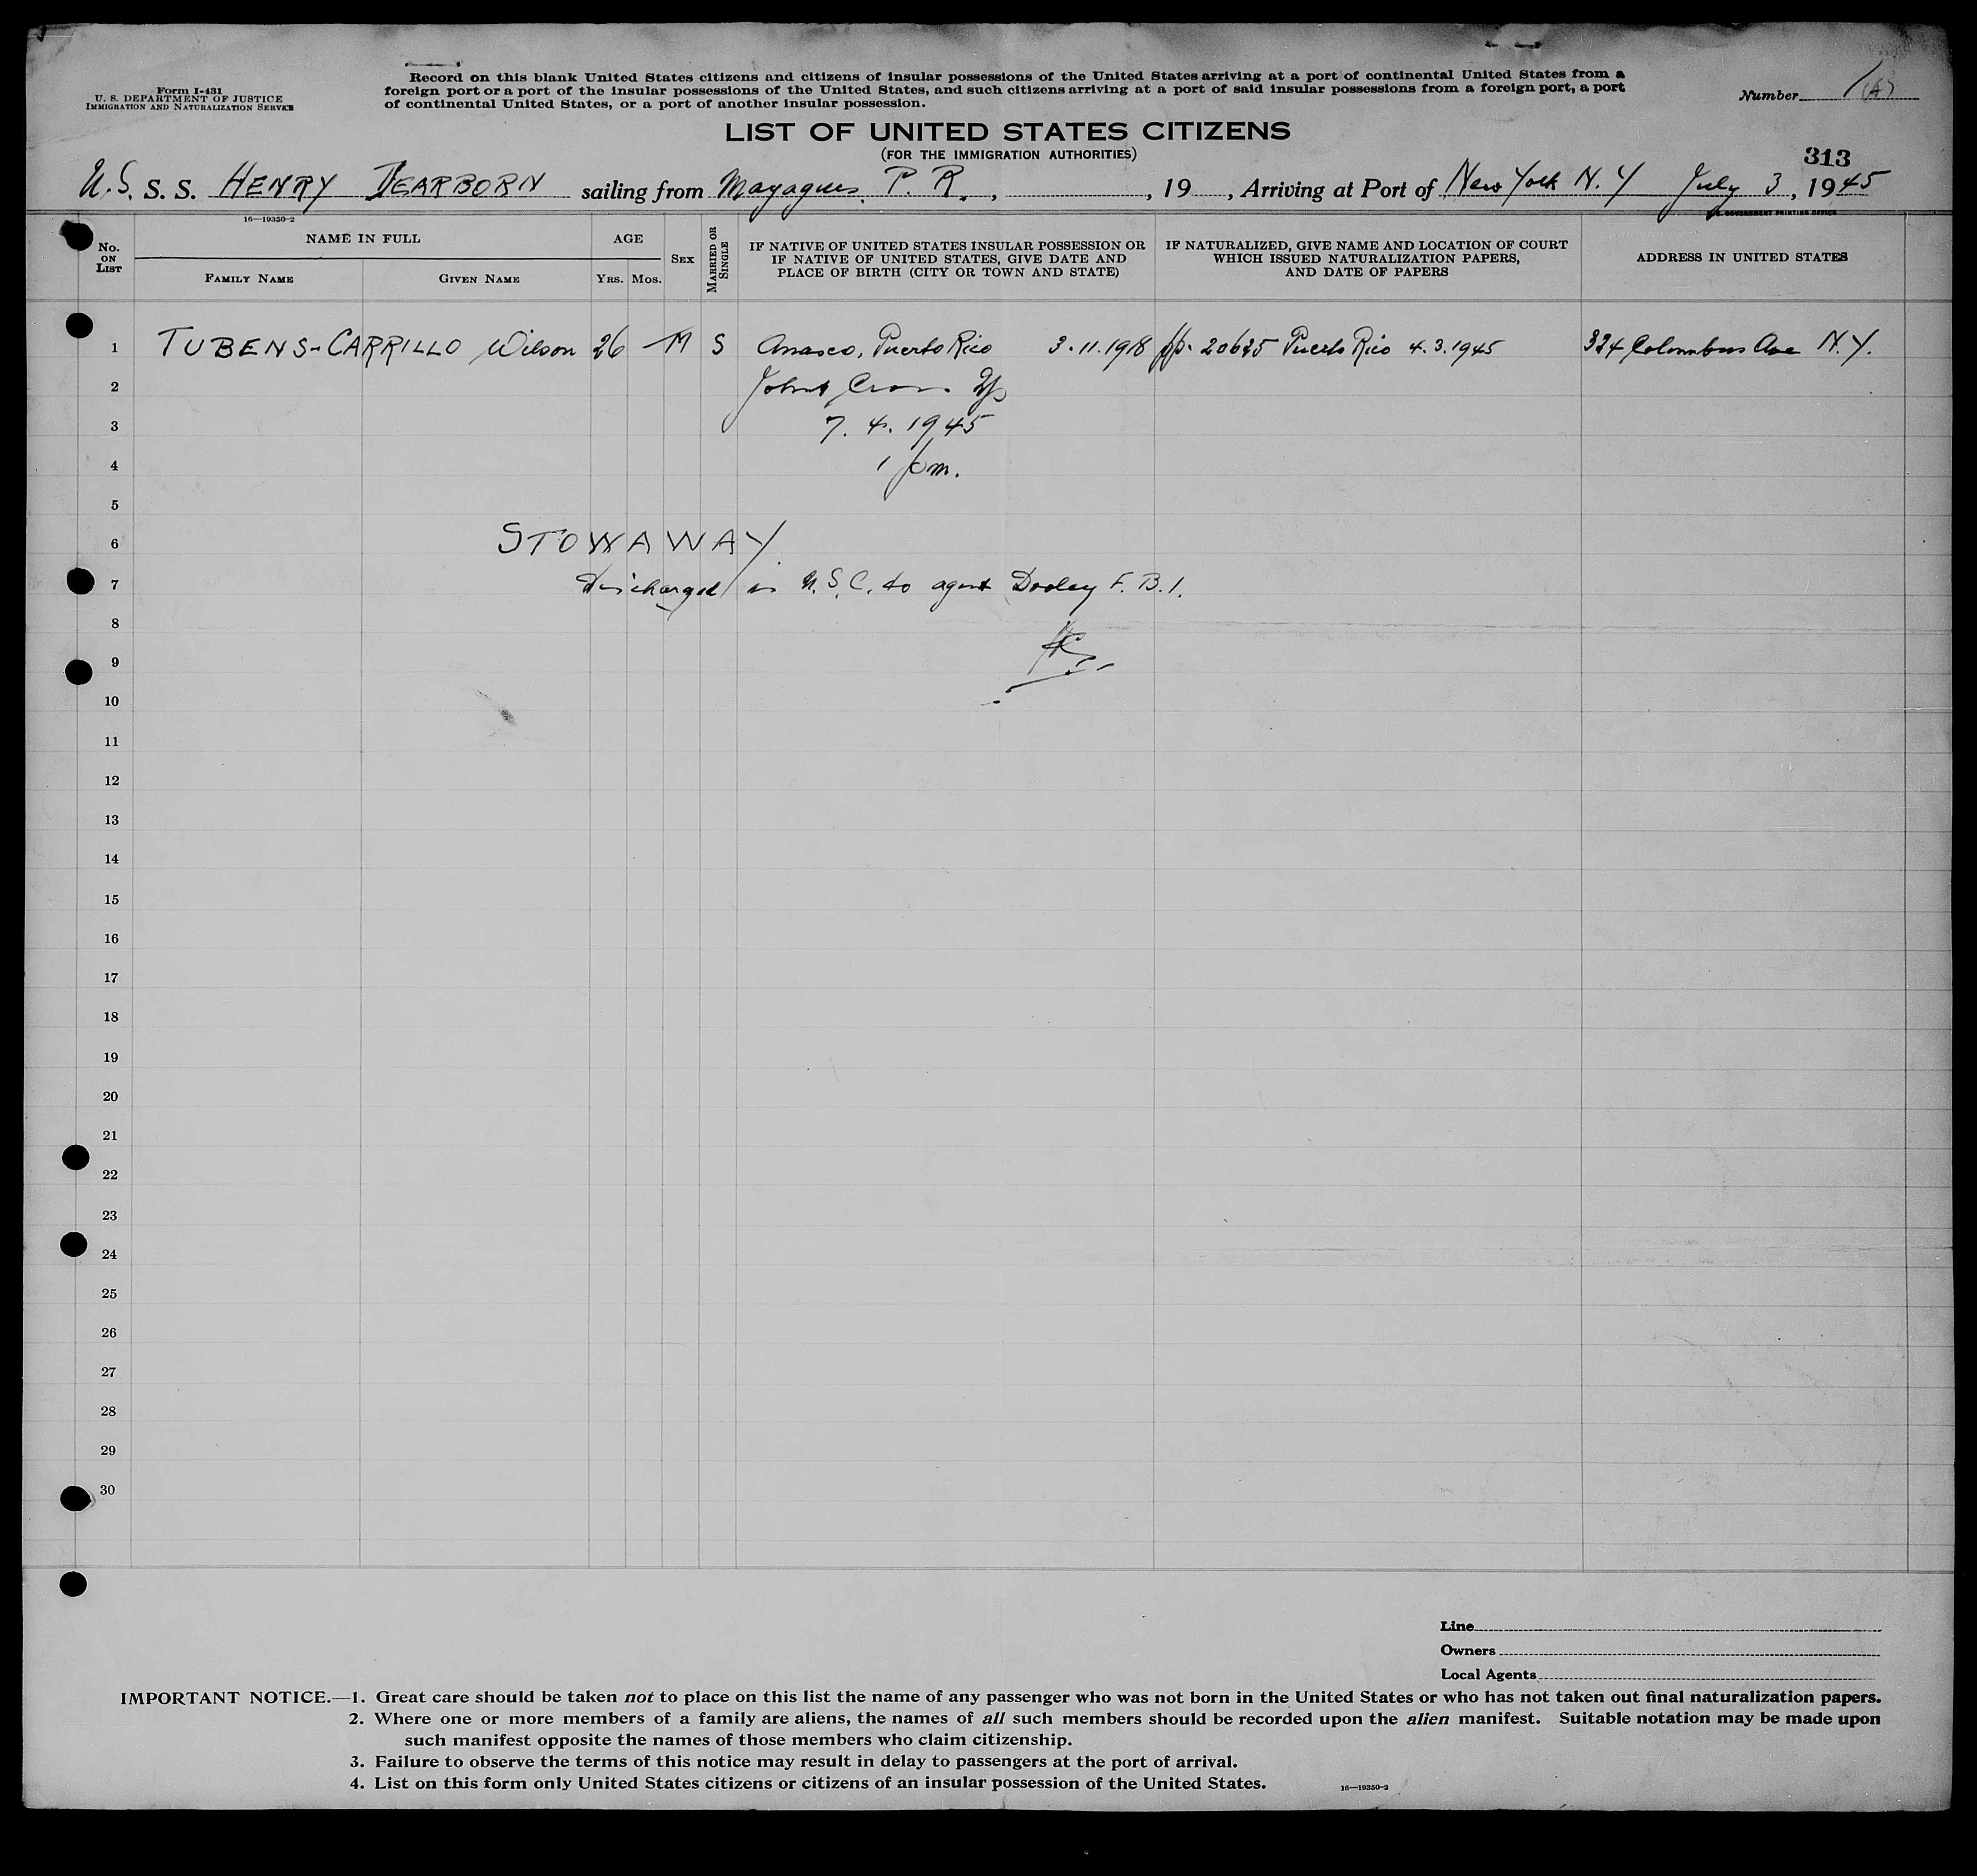 Form I-431
U. S. DEPARTMENT OF JUSTICE
IMMIGRATION AND NATURALIZATION SERVICE
Record on this blank United States citizens and citizens of insular possessions of the United States arriving at a port of continental United States from a
foreign port or a port of the insular possessions of the United States, and such citizens arriving at a port of said insular possessions from a foreign port, a port
of continental United States, or a port of another insular possession.
Number 1(A)
LIST OF UNITED STATES CITIZENS
(FOR THE IMMIGRATION AUTHORITIES)
313
U.S. S. S. HENRY DEARBORN sailing from Mayagues, P. R., , 19 , Arriving at Port of New York N. Y July 3, 1945
16—19350-2
U. S. GOVERNMENT PRINTING OFFICE
No. ON LIST
NAME IN FULL
FAMILY NAME
GIVEN NAME
AGE
YRS. MOS.
SEX
MARRIED OR SINGLE
IF NATIVE OF UNITED STATES INSULAR POSSESSION OR
IF NATIVE OF UNITED STATES, GIVE DATE AND
PLACE OF BIRTH (CITY OR TOWN AND STATE)
IF NATURALIZED, GIVE NAME AND LOCATION OF COURT
WHICH ISSUED NATURALIZATION PAPERS,
AND DATE OF PAPERS
ADDRESS IN UNITED STATES
1 TUBENS-CARRILLO Wilson 26 — M S Anasco, Puerto Rico 3.11.1918 pp. 20625 Puerto Rico 4.3.1945 324 Columbus Ave N.Y.
2
3 7. 4. 1945
4 1 pm.
5
6 STOWAWAY
7 Discharged as U.S.C. to agent Dooley F. B. I.
8
9
10
11
12
13
14
15
16
17
18
19
20
21
22
23
24
25
26
27
28
29
30
Line
Owners
Local Agents
IMPORTANT NOTICE.—1. Great care should be taken not to place on this list the name of any passenger who was not born in the United States or who has not taken out final naturalization papers.
2. Where one or more members of a family are aliens, the names of all such members should be recorded upon the alien manifest. Suitable notation may be made upon
such manifest opposite the names of those members who claim citizenship.
3. Failure to observe the terms of this notice may result in delay to passengers at the port of arrival.
4. List on this form only United States citizens or citizens of an insular possession of the United States.
16—19350-2